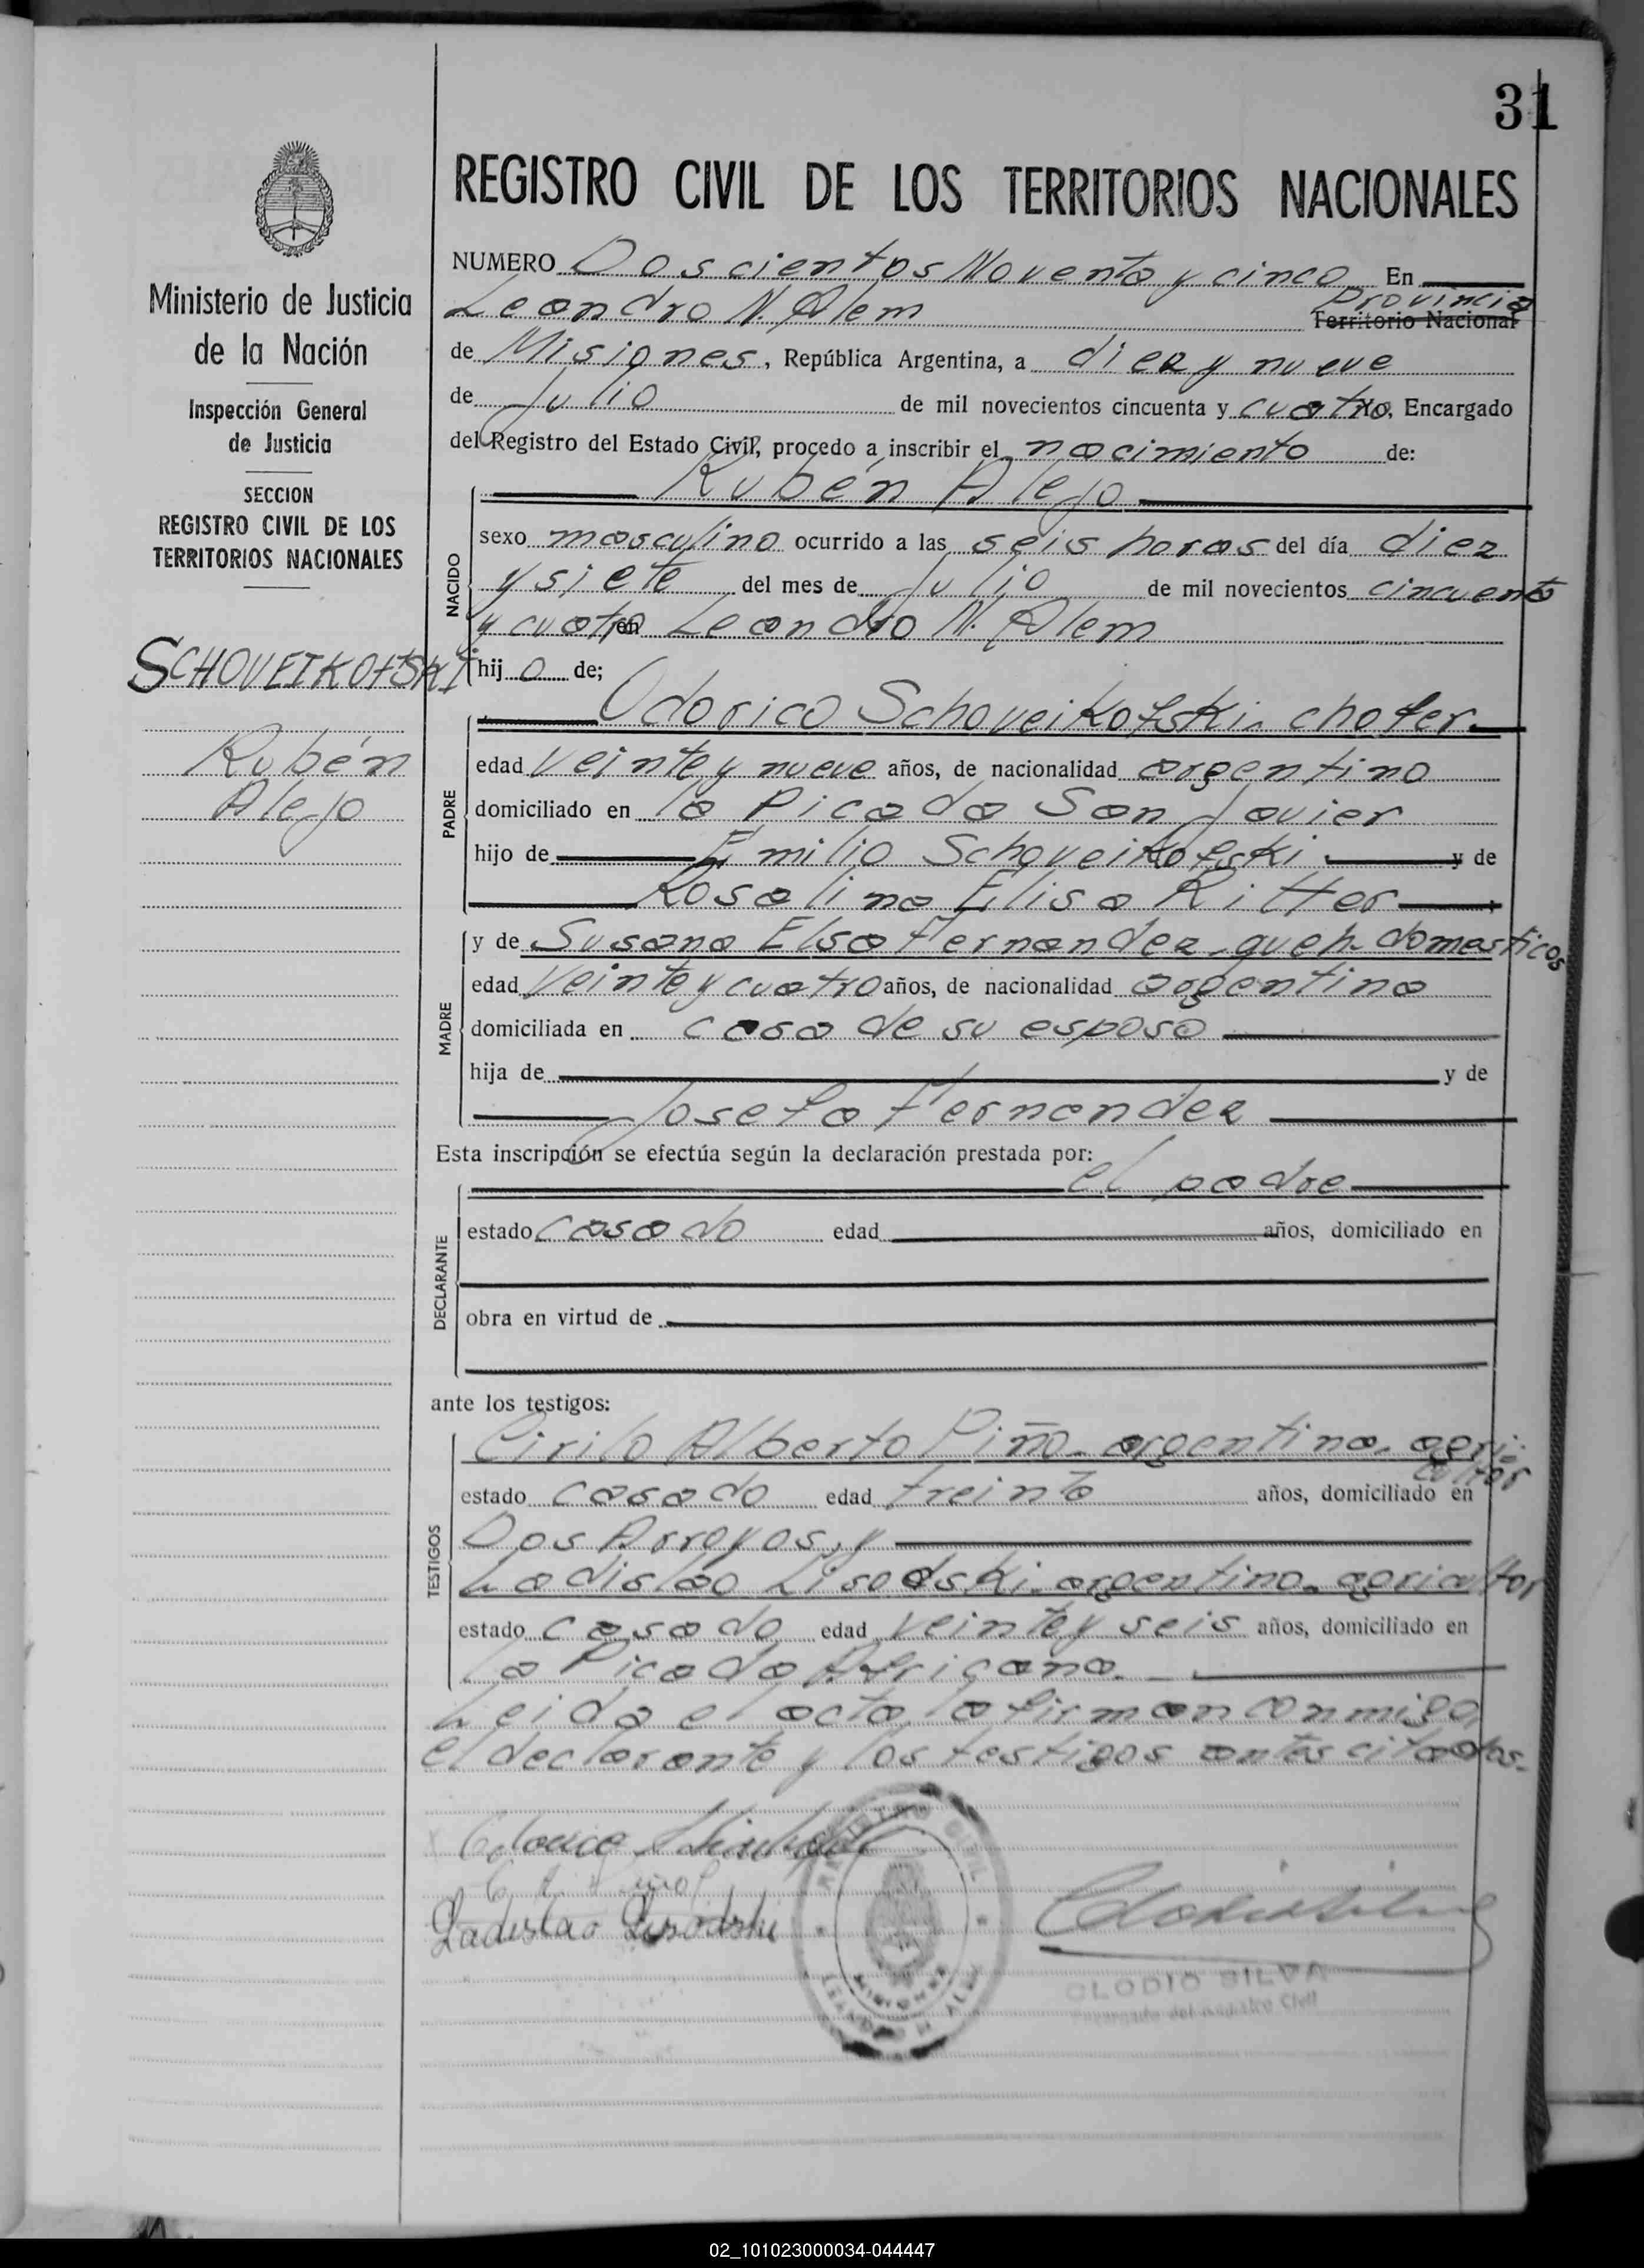 31
REGISTRO CIVIL DE LOS TERRITORIOS NACIONALES
Ministerio de Justicia
de la Nación
Inspección General
de Justicia
SECCION
REGISTRO CIVIL DE LOS
TERRITORIOS NACIONALES
SCHOVEIKOFSKI
Rubén
Alejo
NUMERO Doscientos Noventa y cinco En
Leandro N. Alem Provincia Territorio Nacional
de Misiones, República Argentina, a diez y nueve
de Julio de mil novecientos cincuenta y cuatro Yo, Encargado
del Registro del Estado Civil, procedo a inscribir el nacimiento de:
Rubén Alejo
NACIDO
sexo masculino ocurrido a las seis horas del día diez
y siete del mes de Julio de mil novecientos cincuenta
y cuatro en Leandro N. Alem
hijo de;
PADRE
Odorico Schoveikofski- chofer
edad veinte y nueve años, de nacionalidad argentino
domiciliado en la Picada San Javier
hijo de Emilio Schoveikofski y de
Rosalina Elisa Ritter
MADRE
y de Susana Elsa Fernandez- queh. domesticos
edad veinte y cuatro años, de nacionalidad argentina
domiciliada en casa de su esposo
hija de y de
Josefa Fernandez
Esta inscripción se efectúa según la declaración prestada por:
el padre
DECLARANTE
estado casado edad años, domiciliado en
obra en virtud de
ante los testigos:
TESTIGOS
Cirilo Alberto Piño- argentino- agri-
cultor
estado casado edad treinta años, domiciliado en
Dos Arroyos, y
Ladislao Lisodski- argentino- agricultor
estado casado edad veinte y seis años, domiciliado en
la Picada Africana.
Leida el acta la firman conmigo,
el declarante y los testigos antes citados.-
Ladislao Lisodski
REGISTRO CIVIL
MISIONES
LEANDRO N. ALEM
CLODIO SILVA
Encargado del Registro Civil
02_101023000034-044447